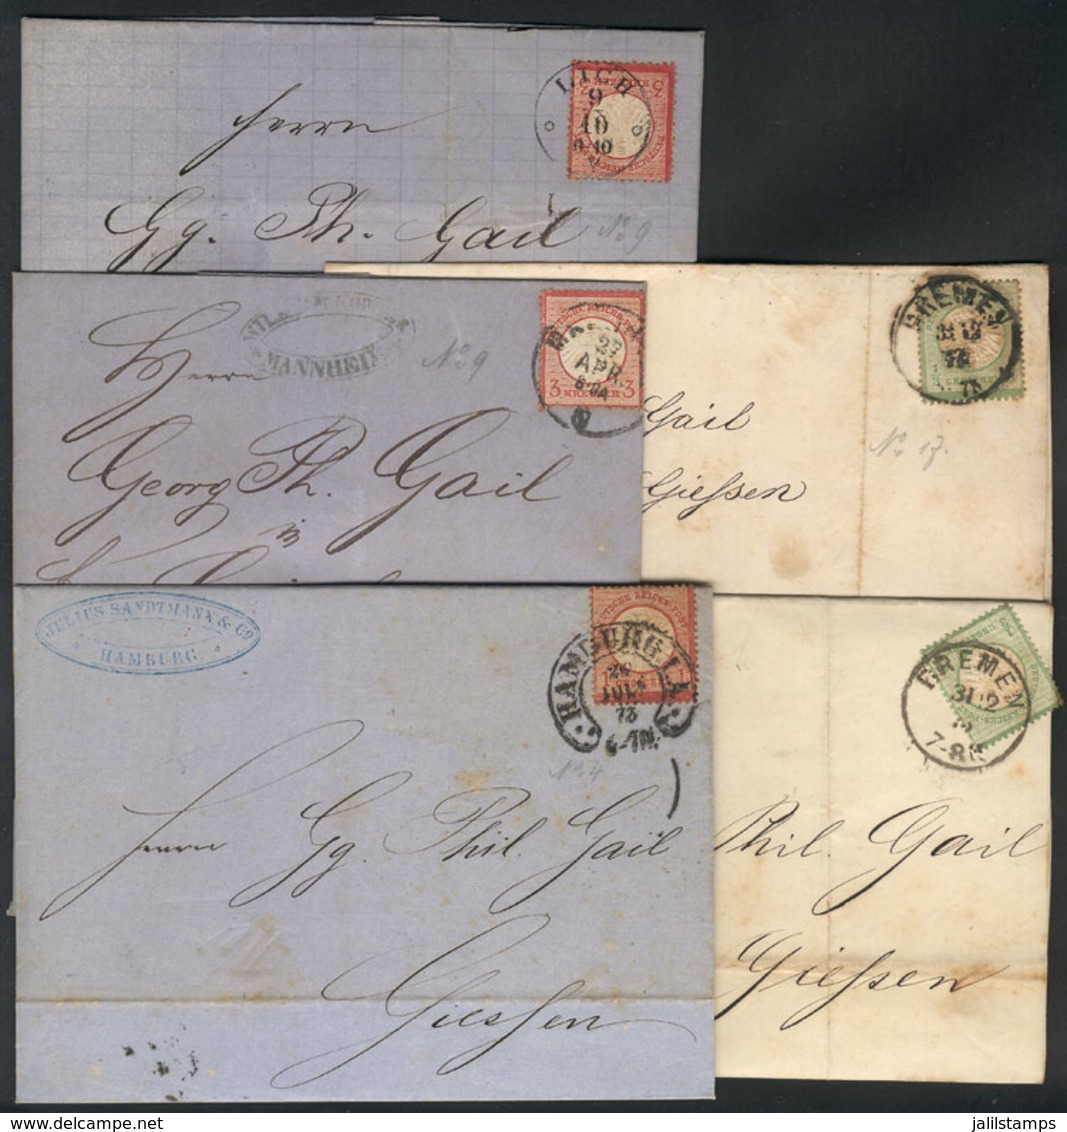 LICH
9
10
9-10
Herrn
Gg. Ph. Gail
No 9
MANNHEIM
No 9
23
APR.
3 3
KREUZER
Herrn
Georg Ph. Gail
in
BREMEN
Gail
No 17.
Giessen
JULIUS SANDTMANN & CO
HAMBURG.
DEUTSCHE REICHS-POST
HAMBURG I.A.
26
JUL
73
6-7N.
No 4
Herrn Gg. Phil. Gail
Giessen
BREMEN
31 12
7-8N
Phil. Gail
Giessen
www.delcampe.net
jalilstamps